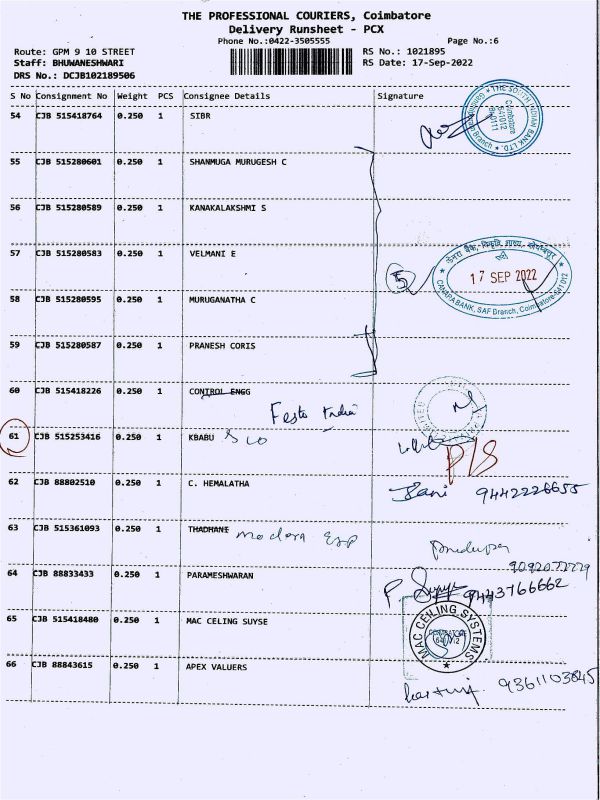 THE PROFESSIONAL COURIERS, Coimbatore
Delivery Runsheet - PCX
Phone No.:0422-3505555 Page No.:6
Route: GPM 9 10 STREET RS No.: 1021895
Staff: BHUWANESHWARI RS Date: 17-Sep-2022
DRS No.: DCJB102189506
S No Consignment No Weight PCS Consignee Details Signature
54 CJB 515418764 0.250 1 SIBR
THE SOUTH INDIAN BANK LTD.
Coimbatore
641012
Branch
55 CJB 515280601 0.250 1 SHANMUGA MURUGESH C
56 CJB 515280589 0.250 1 KANAKALAKSHMI S
57 CJB 515280583 0.250 1 VELMANI E
5
17 SEP 2022
CANARA BANK, SAF Branch, Coimbatore-641 012
58 CJB 515280595 0.250 1 MURUGANATHA C
59 CJB 515280587 0.250 1 PRANESH CORIS
60 CJB 515418226 0.250 1 CONTROL ENGG
Festo India
61 CJB 515253416 0.250 1 KBABU S/O
P/S
62 CJB 88802510 0.250 1 C. HEMALATHA
9442226655
63 CJB 515361093 0.250 1 THADHANI
64 CJB 88833433 0.250 1 PARAMESHWARAN
9443766662
65 CJB 515418480 0.250 1 MAC CELING SUYSE
MAC CEILING SYSTEMS
66 CJB 88843615 0.250 1 APEX VALUERS
9361103845